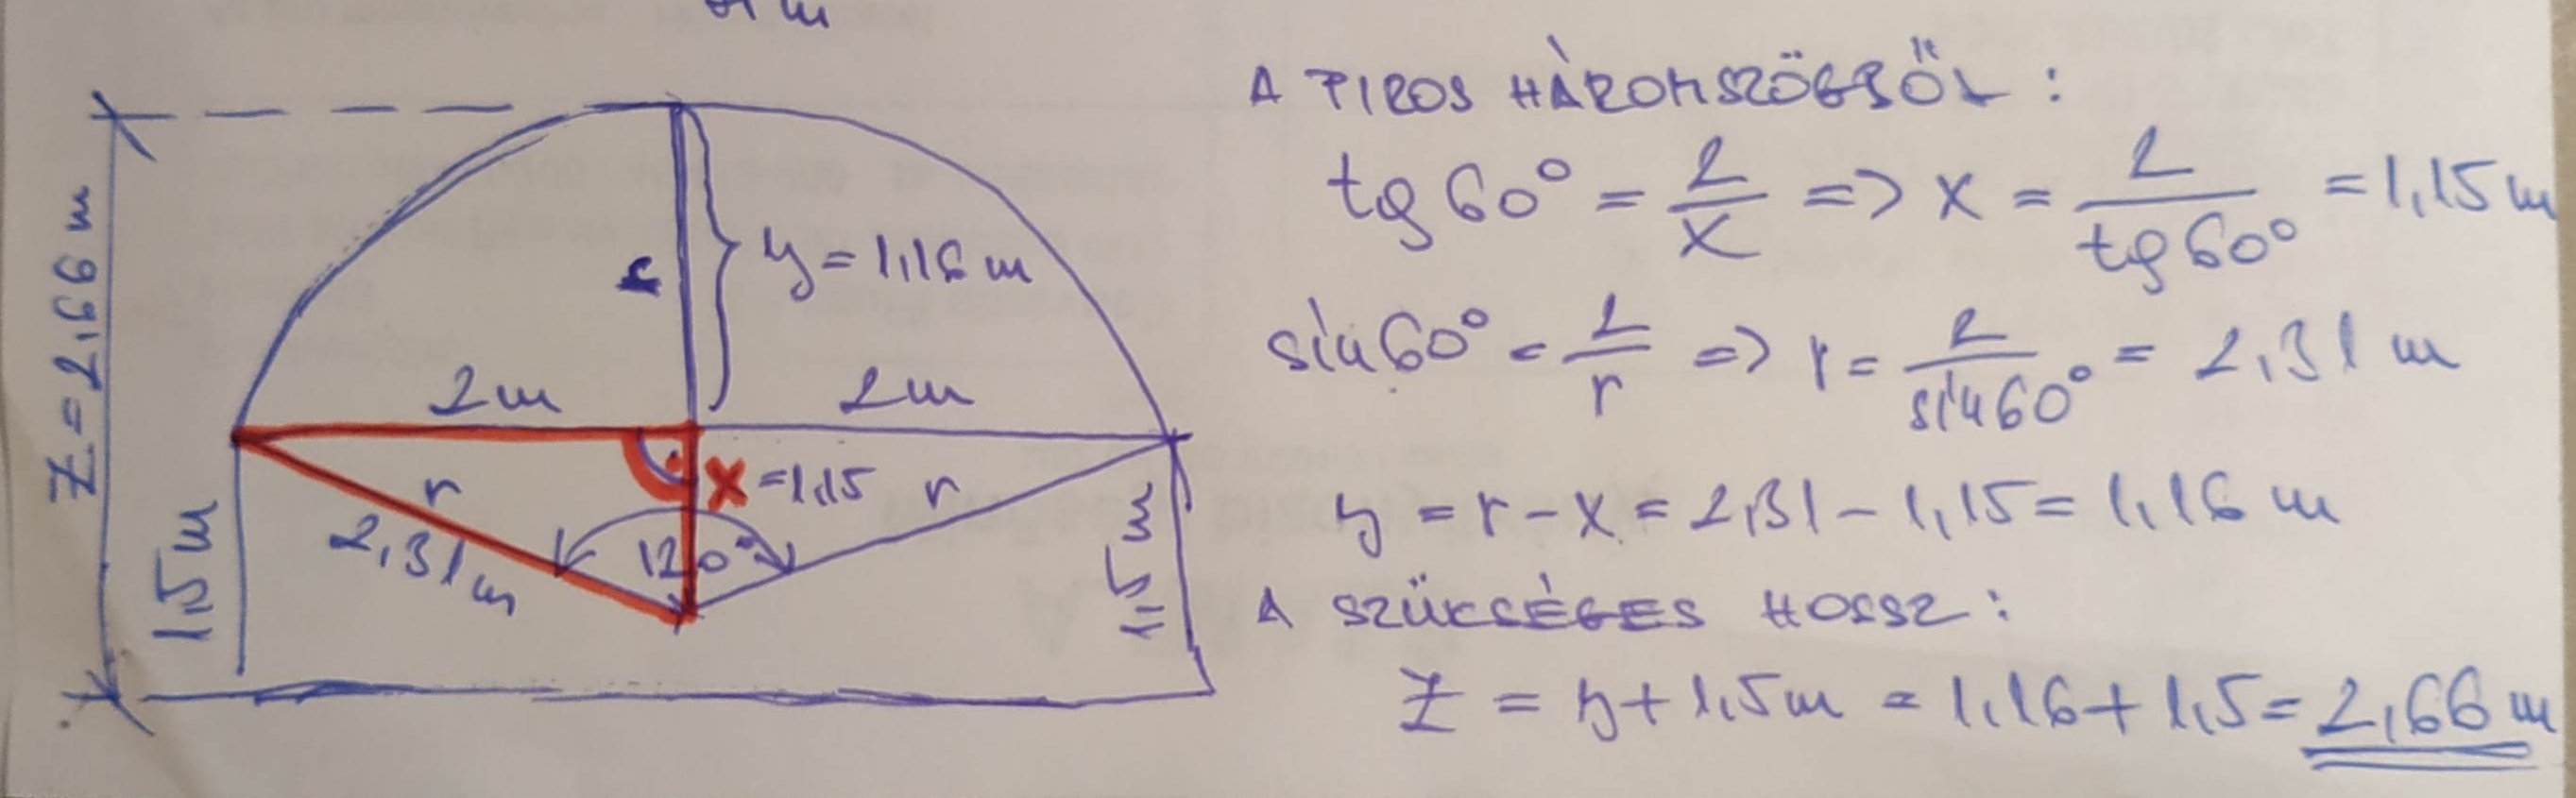 m
z=2,66 m
r
y=1,16 m
2m
2m
x=1,15
r
r
2,31 m
120°
1,5m
1,5 m
A PIROS HÀROMSZÖGBŐL :
tg 60° = 2/x => x = 2/tg60° = 1,15 m
sin60° = 2/r => r = 2/sin60° = 2,31 m
y = r - x = 2,31 - 1,15 = 1,16 m
A SZÜKSÈGES HOSSZ :
z = y + 1,5m = 1,16 + 1,5 = 2,66 m